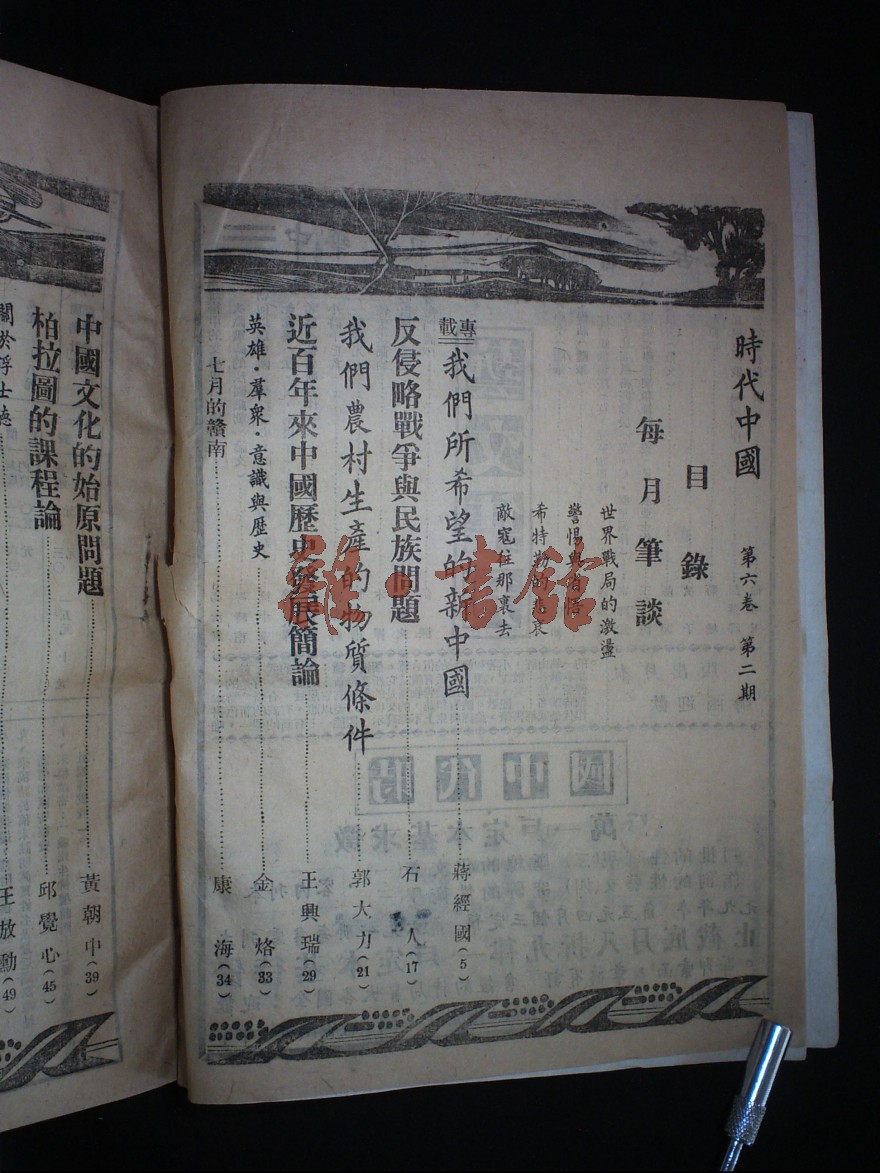 時代中國　第六卷　第二期
目錄
每月筆談
世界戰局的激盪
警惕與自悟
希特勒的悲哀
敵寇往那裏去
專載
我們所希望的新中國……蔣經國(5)
反侵略戰爭與民族問題……石人(17)
我們農村生產的物質條件……郭大力(21)
近百年來中國歷史發展簡論……王興瑞(29)
英雄・羣衆・意識與歷史……金烙(33)
七月的贛南……康海(34)
中國文化的始原問題……黃朝中(39)
柏拉圖的課程論……邱覺心(45)
關於浮士德……王放勳(49)
雜・書館
國中代時